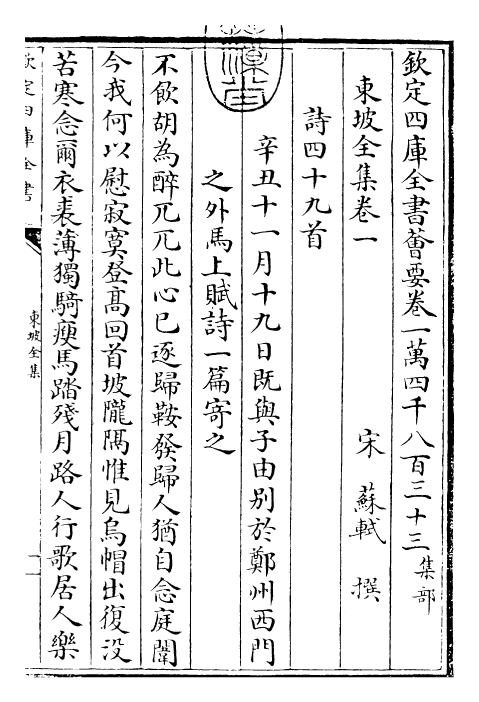 欽定四庫全書薈要卷一萬四千八百三十三集部
東坡全集卷一
宋蘇軾撰
詩四十九首
辛丑十一月十九日既與子由別於鄭州西門
之外馬上賦詩一篇寄之
不飲胡為醉兀兀此心已逐歸鞍發歸人猶自念庭闈
今我何以慰寂寞登高回首坡隴隔惟見烏帽出復没
苦寒念爾衣裘薄獨騎瘦馬踏殘月路人行歌居人樂
欽定四庫全書
東坡全集
一